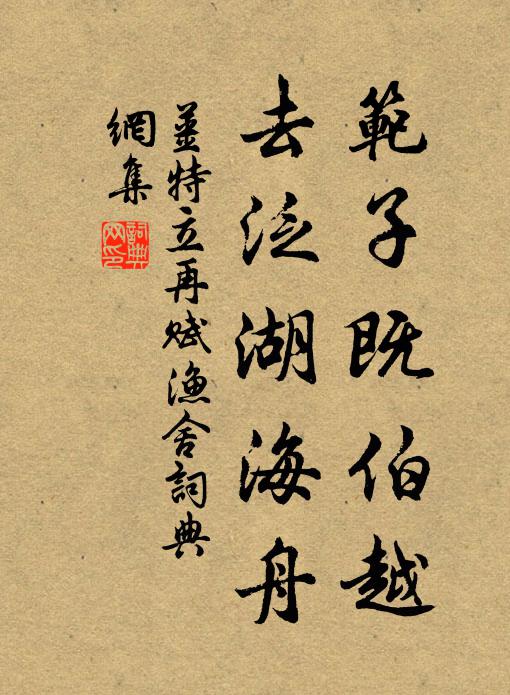 範子既伯越
去泛湖海舟
薑特立再賦漁舍詞典
網集
詞典
网印